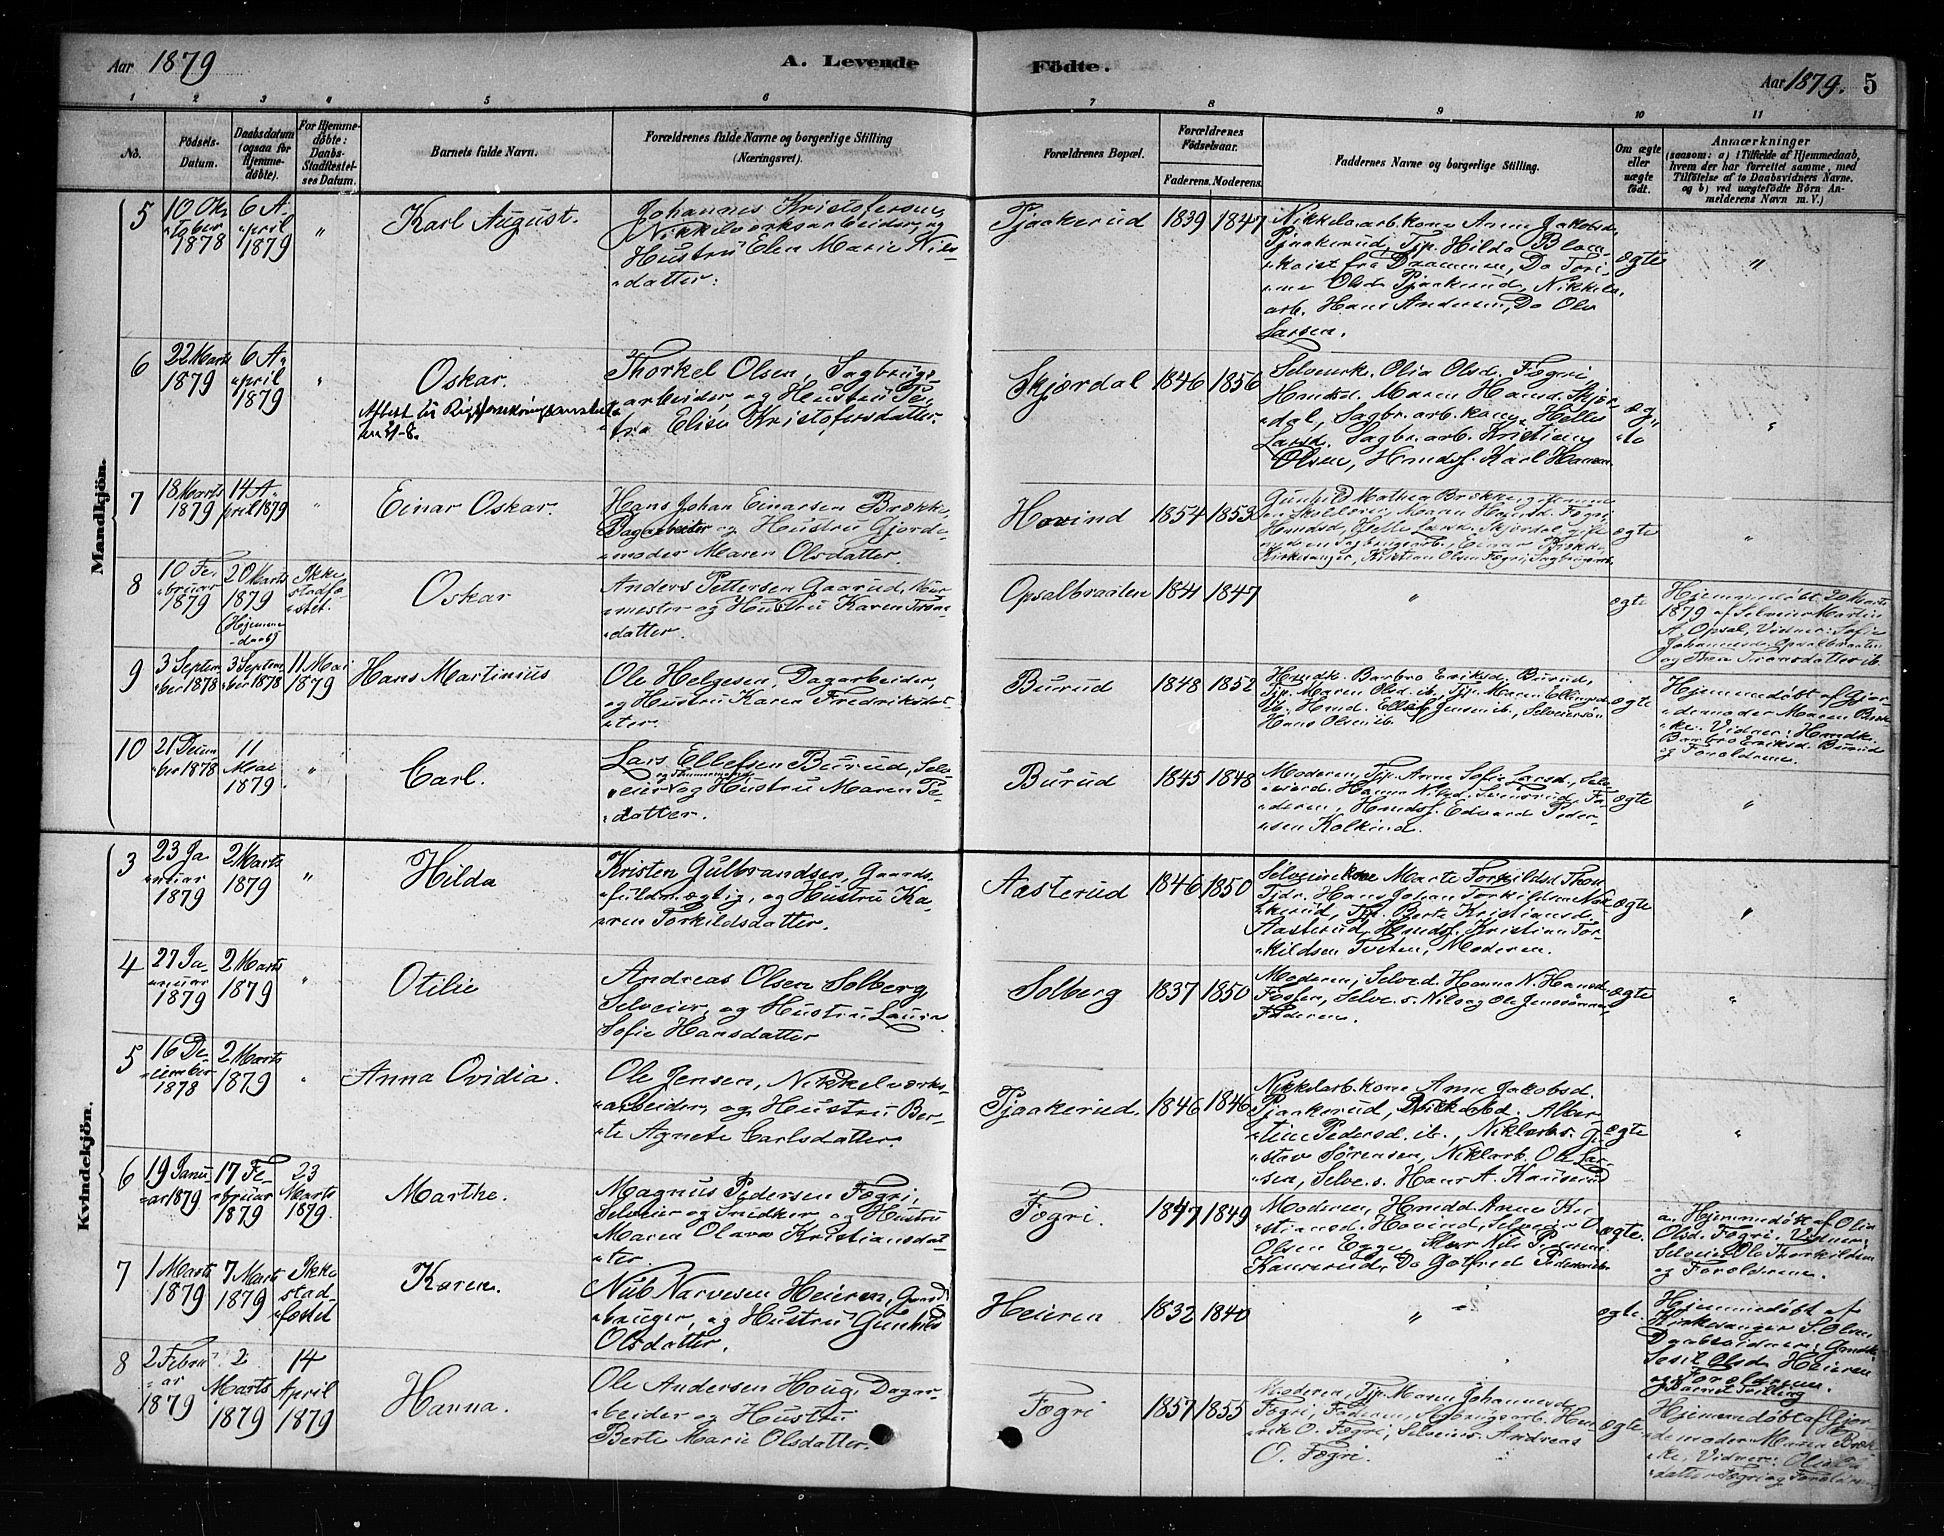 Aar 1879
A. Levende
Födte.
Aar 1879.
5
1 2 3 4 5 6 7 8 9 10 11
No.
Födsels-
Datum.
Daabsdatum
(ogsaa for
Hjemme-
døbte).
For Hjemme-
døbte:
Daabs-
Stadfæstel-
ses Datum.
Barnets fulde Navn.
Forældrenes fulde Navne og borgerlige Stilling
(Næringsvei).
Forældrenes Bopæl.
Forældrenes
Födselsaar.
Faderens. Moderens.
Faddernes Navne og borgerlige Stilling.
Om ægte
eller
uægte
født.
Anmærkninger
(saasom: a) i Tilfælde af Hjemmedaab,
hvem der har forrettet samme, med
Tilföielse af to Daabsvidners Navne.
og b) ved uægtefödte Börn An-
melderens Navn m. V.)
Mandkjön.
5
10 Ok-
tober
1878
6 A-
pril
1879
"
Karl August.
Johannes Kristofersen,
Nikkelverksarbeider, og
Hustru Elen Marie Nils-
datter.
Tjaakerud
1839 1847
Nikkelarb.kone Anne Jakobsd.
Tjaakerud, Tjp. Hilda Blom-
kvist fra Drammen, Do Tori-
ne Olsd. Tjaakerud, Nikkel-
arb. Hans Andersen, Do Ole
Larsen.
ægte
"
6
22 Marts
1879
6 A-
pril
1879
"
Oskar.
Thorkel Olsen, Sagbrugs-
arbeider, og Hustru Pe-
tra Elise Kristofersdatter.
Skjærdal
1846 1856
Selveierk. Olia Olsd. Fægri
Hmdsd. Maren Hansd. Skjær-
dal, Sagbr.arb.kone Helle
Larsd. Sagbr.arb. Kristian
Olsen, Hmdsf. Karl Hansen
æg-
te
"
7
18 Marts
1879
14 A-
pril 1879
"
Einar Oskar.
Hans Johan Einarsen Brække,
Dagarbeider og Hustru Gjorde-
moder Maren Olsdatter.
Hovind
1854 1853
Gunhild Mathea Brække, gift
Skjærdal, gift
Kirkesanger, Kristian Olsen Fægri, Sagbrugsarb.
ægte
"
8
10 Fe-
bruar
1879
20 Marts
1879
(Hjemme-
daab)
Ikke
stadfæ-
stet.
Oskar
Anders Pettersen Gaarud, Mur-
mester og Hustru Karen Trons-
datter.
Opsalbraaten
1841 1847
"
ægte
Hjemmedøbt 20 Marts
1879 af Selveier Martin
A. Opsal, Vidner: Sofie
Johannesd. Opsalbraaten
og Thea Tronsdatter ib.
9
3 Septem-
ber 1878
3 Septem-
ber 1878
11 Mai
1879
Hans Martinius
Ole Helgesen, Dagarbeider,
og Hustru Karen Fredriksdat-
ter
Burud
1848 1852
Hmdk. Barbro Eriksd. Burud,
Tjp. Maren Olsd. ib., Tjp. Maren Ellingsd.
ib. Hmd. Ellef Jensen ib., Selveiersøn
Hans Olsen ib.
ægte
Hjemmedøbt af Gjor-
demoder Maren Bræk-
ke. Vidner: Hmdk.
Barbro Eriksd. Burud
og Forældrene.
10
21 Decem-
ber 1878
11
Mai
1879.
"
Carl.
Lars Ellefsen Burud, Selv-
eier og Hustru Maren Pe-
datter.
Burud
1845 1848
Moderen, Tjp. Anne Sofie Larsd., Selv-
eierd. Hanna Nilsd. Fa-
deren, Hmdsf. Edvard Peder-
sen Kolkind.
ægte
"
Kvindekjön.
3
23 Ja-
nuar
1879
2 Marts
1879
"
Hilda
Kristen Gulbrandsen, Gaards-
fuldmægtig, og Hustru Ka-
ren Torkildsdatter.
Aasterud
1846 1850
Selveierkone Marte Torkildsd. Thon
Tjdr. Hans Johan Torkildsen
Tjp. Berte Kristiansd.
Aasterud, Hmdsf. Kristian Tor-
kildsen Tveten, Moderen.
ægte
"
4
27 Ja-
nuar
1879
2 Marts
1879
"
Otilie
Andreas Olsen Solberg
Selveier, og Hustru Laura
Sofie Hansdatter
Solberg
1837 1850
Moderen, Selved. Hanna N. Hansd.
Selve.s. Nils og Ole Jenssønner,
Faderen.
ægte
"
5
16 De-
cember
1878
2 Marts
1879
"
Anna Ovidia.
Ole Jensen, Nikkelværks-
arbeider, og Hustru Ber-
te Agnete Carlsdatter.
Tjaakerud.
1846 1846
Nikkelarb.kone Anne Jakobsd.
Tjaakerud, Alber-
tine Pedersd. ib., Niklarbs. Gu-
stav Sørensen, Niklarb. Ole Lar-
sen, Selve.s. Hans A. Kanserud
ægte
"
6
19 Janu-
ar 1879
17 Fe-
bruar
1879
23
Marts
1879.
Marthe.
Magnus Pedersen Fægri,
Selveier og Snedker og Hustru
Maren Olava Kristiansdat-
ter.
Fægri.
1847 1849
Moderen, Hmdd. Anne Kri-
stiansd. Hovind, Selveier O.
Olsen Egge, Nils Pedersen
Kanserud, Do Gotfred Pedersen ib.
ægte.
a. Hjemmedøbt af Olia
Olsd. Fægri, Vidner:
Selveier Ole Thorkildsen
og Forældrene.
7
1 Marts
1879
7 Marts
1879
Ikke
stad-
fæstet
Karen.
Nils Narvesen Heieren, Gaard-
bruger, og Hustru Gunhild
Olsdatter.
Heieren
1832 1840
"
ægte.
Hjemmedøbt af
Kirkesanger S. Olsen
Daabsvidner: Gmdk.
Sesil Olsd. Heieren
og Forældrene.
Barnet Tvilling
8
2 Febru-
ar
1879
2
Marts
1879
14
April
1879
Hanna.
Ole Andersen Houg, Dagar-
beider og Hustru
Berte Marie Olsdatter.
Fægri
1857 1855
Moderen, Tjp. Maren Johannesd.
Fægri, Faderen, Sagbrugsarb. Hen-
rik O. Fægri, Selveiers. Andreas
O. Fægri.
ægte.
Hjemmedøbt af Gjor-
demoder Maren Bræk-
ke, Vidner: Olia Ols-
datter Fægri og Forældrene